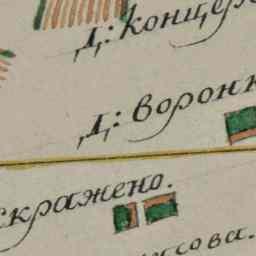 Д: Концер
Д: Ворон
скражено.
сова.